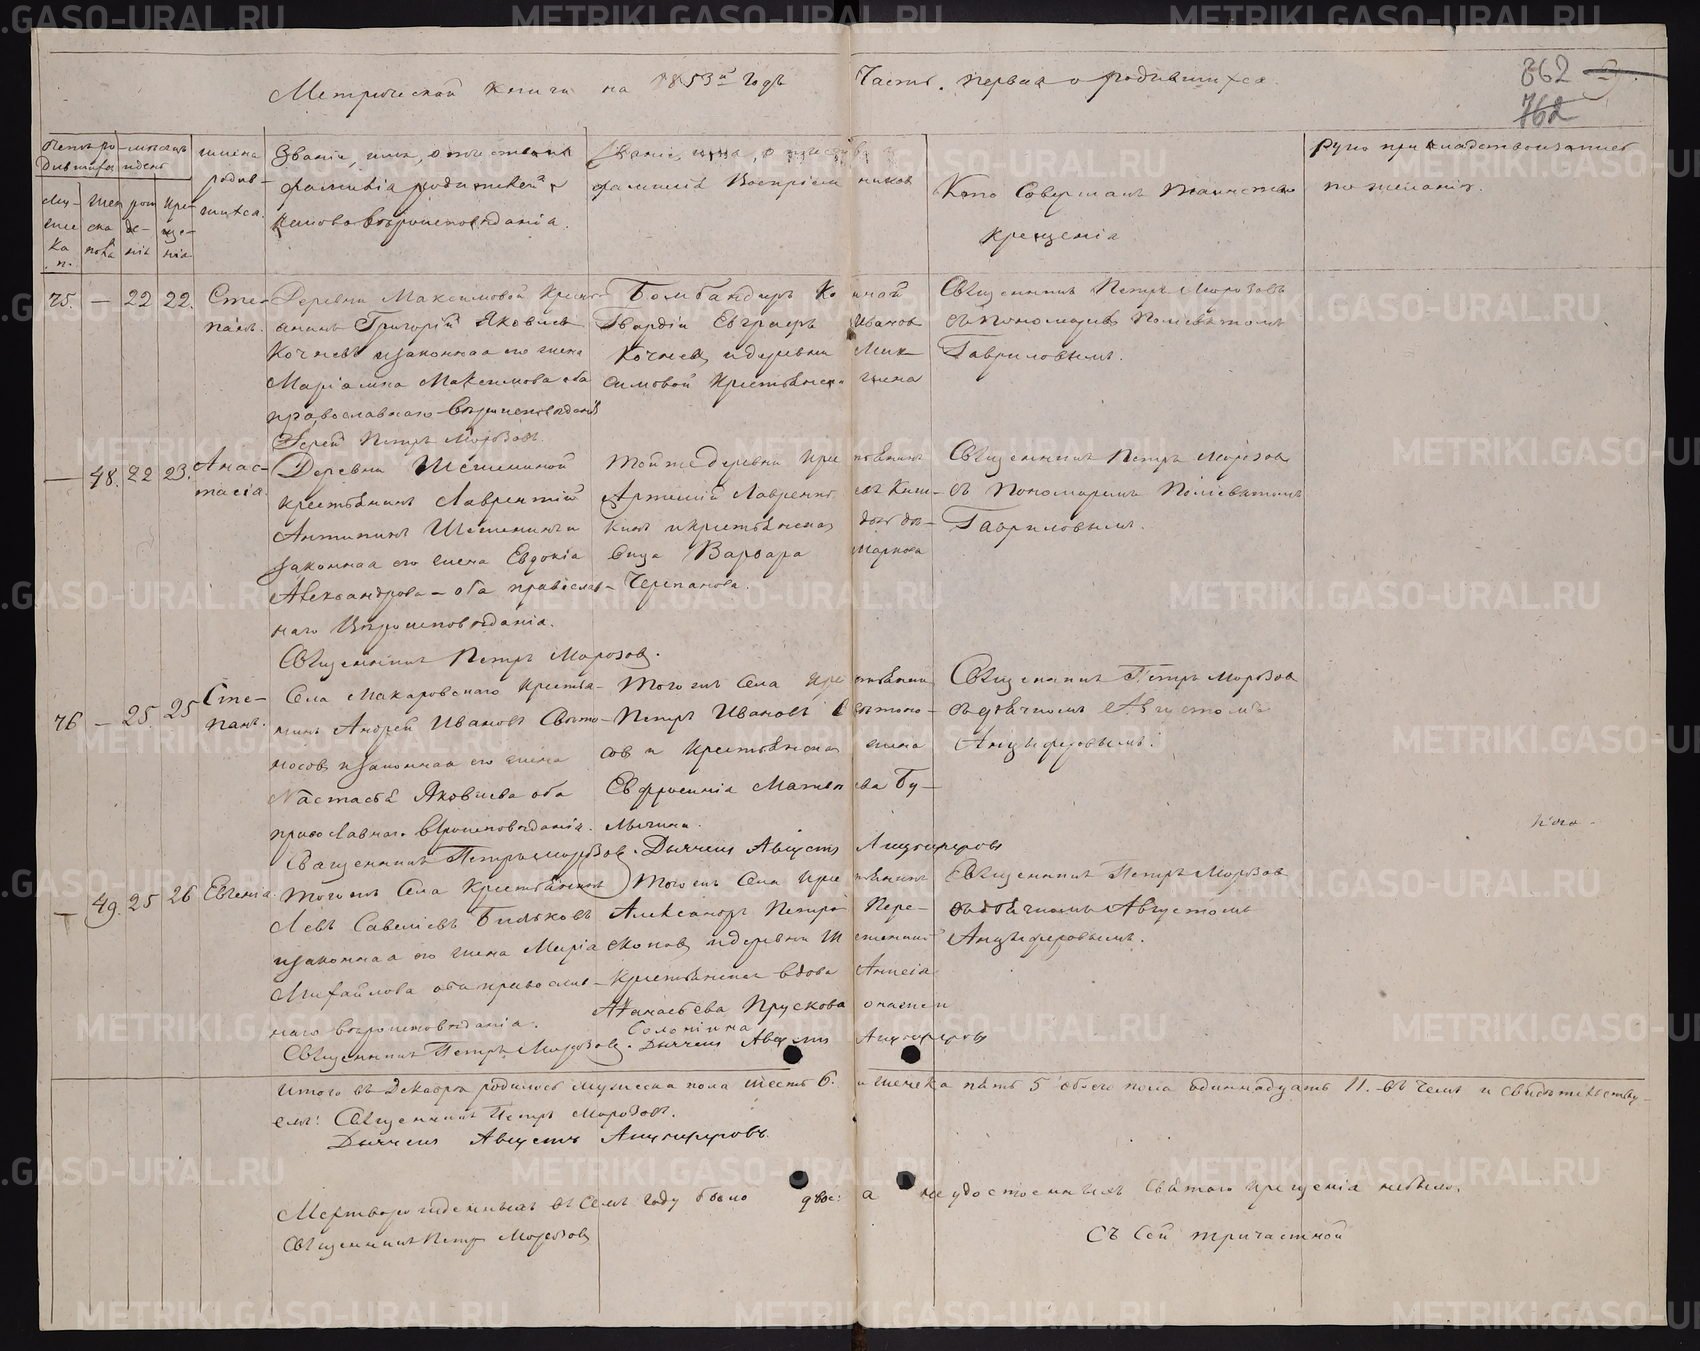 Метрической книги на 1853й годъ Часть первая о родившихся.
862
762
Счетъ родившихся
мѣсяцъ и день
имена родившихся.
Званіе, имя, отчество и
фамилія родителей и
какого вѣроисповѣданія.
Званіе, имя, отчество и
фамилія Воспріемниковъ
Кто совершалъ таинство
крещенія
Рукоприкладство записей
по желанію.
Муже-
ска
п.
Жен
ска
пола
рож
де-
нія
Кре-
ще-
нія
75. — 22 22. Сте-
панъ.
Деревни Максимовой Кресть-
янинъ Григорій Яковлевъ
Кочневъ и законная его жена
Маріамна Максимова оба
православнаго вѣроисповѣданія
Іерей Петръ Морозовъ.
Бомбандиръ Конной
Гвардіи Евграфъ Ивановъ
Кочневъ и деревни Мак-
симовой Крестьянска жена
Священникъ Петръ Морозовъ
съ пономаремъ Поліевктомъ
Гавриловымъ.
— 48. 22 23. Анас-
тасія.
Деревни Шеминой
крестьянинъ Лаврентій
Антипинъ Шеминъ и
законная его жена Евдокія
Александрова – оба православ-
наго Вѣроисповѣданія.
Священникъ Петръ Морозовъ.
той же деревни Крестьянинъ
Артемій Лаврентьевъ
и крестьянская вдо-
вица Варвара Маркова
Черепанова.
Священникъ Петръ Морозовъ
съ Пономаремъ Поліевктомъ
Гавриловымъ.
76 — 25. 25 Сте-
панъ.
Села Макаровскаго крестья-
нинъ Андрей Ивановъ Свѣто-
носовъ и законная его жена
Настасья Яковлева оба
православнаго вѣроисповѣданія.
Священникъ Петръ Морозовъ. Дьячекъ Августъ Анцыферовъ
Того же Села крестьянинъ
Петръ Ивановъ Свѣтоно-
совъ и крестьянская жена
Евфросинія Матвѣева Бу-
лычина.
Священникъ Петръ Морозовъ
съ дьячкомъ Августомъ
Анцыферовымъ.
— 49. 25 26 Евгенія.
Того же Села Крестьянинъ
Левъ Савельевъ Бильковъ
и законная его жена Марія
Михайлова оба православ-
наго вѣроисповѣданія.
Священникъ Петръ Морозовъ. Дьячекъ Августъ Анцыферовъ
Того же Села крестьянинъ
Александръ Петровъ Пере-
скоковъ и деревни Шеминой
крестьянская вдова Анисія
Аѳанасьева Прускова
Соломіина
Священникъ Петръ Морозовъ
съ дьячкомъ Августомъ
Анцыферовымъ.
Итого въ Декабрѣ родилось мужеска пола шесть 6. и женска пять 5 обоего пола одиннадцать 11. – въ чемъ и свидѣтельству-
емъ: Священникъ Петръ Морозовъ.
Дьячекъ Августъ Анцыферовъ.
Мертворожденныхъ въ семъ году было двое: а неудостоенныхъ Святаго крещенія небыло.
Священникъ Петръ Морозовъ
Съ сей тричастной